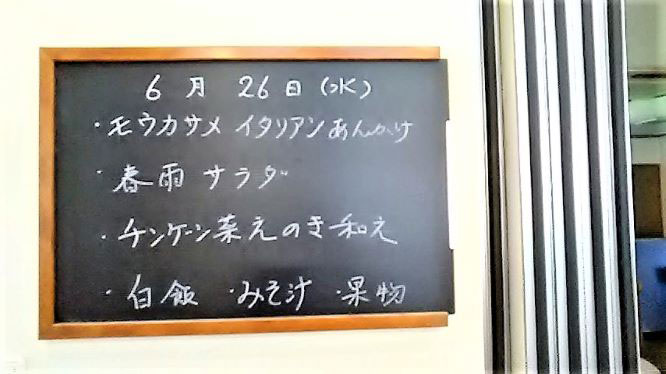 6月 26日(水)
・モウカサメ イタリアンあんかけ
・春雨サラダ
・チンゲン菜えのき和え
・白飯 ・みそ汁 ・果物